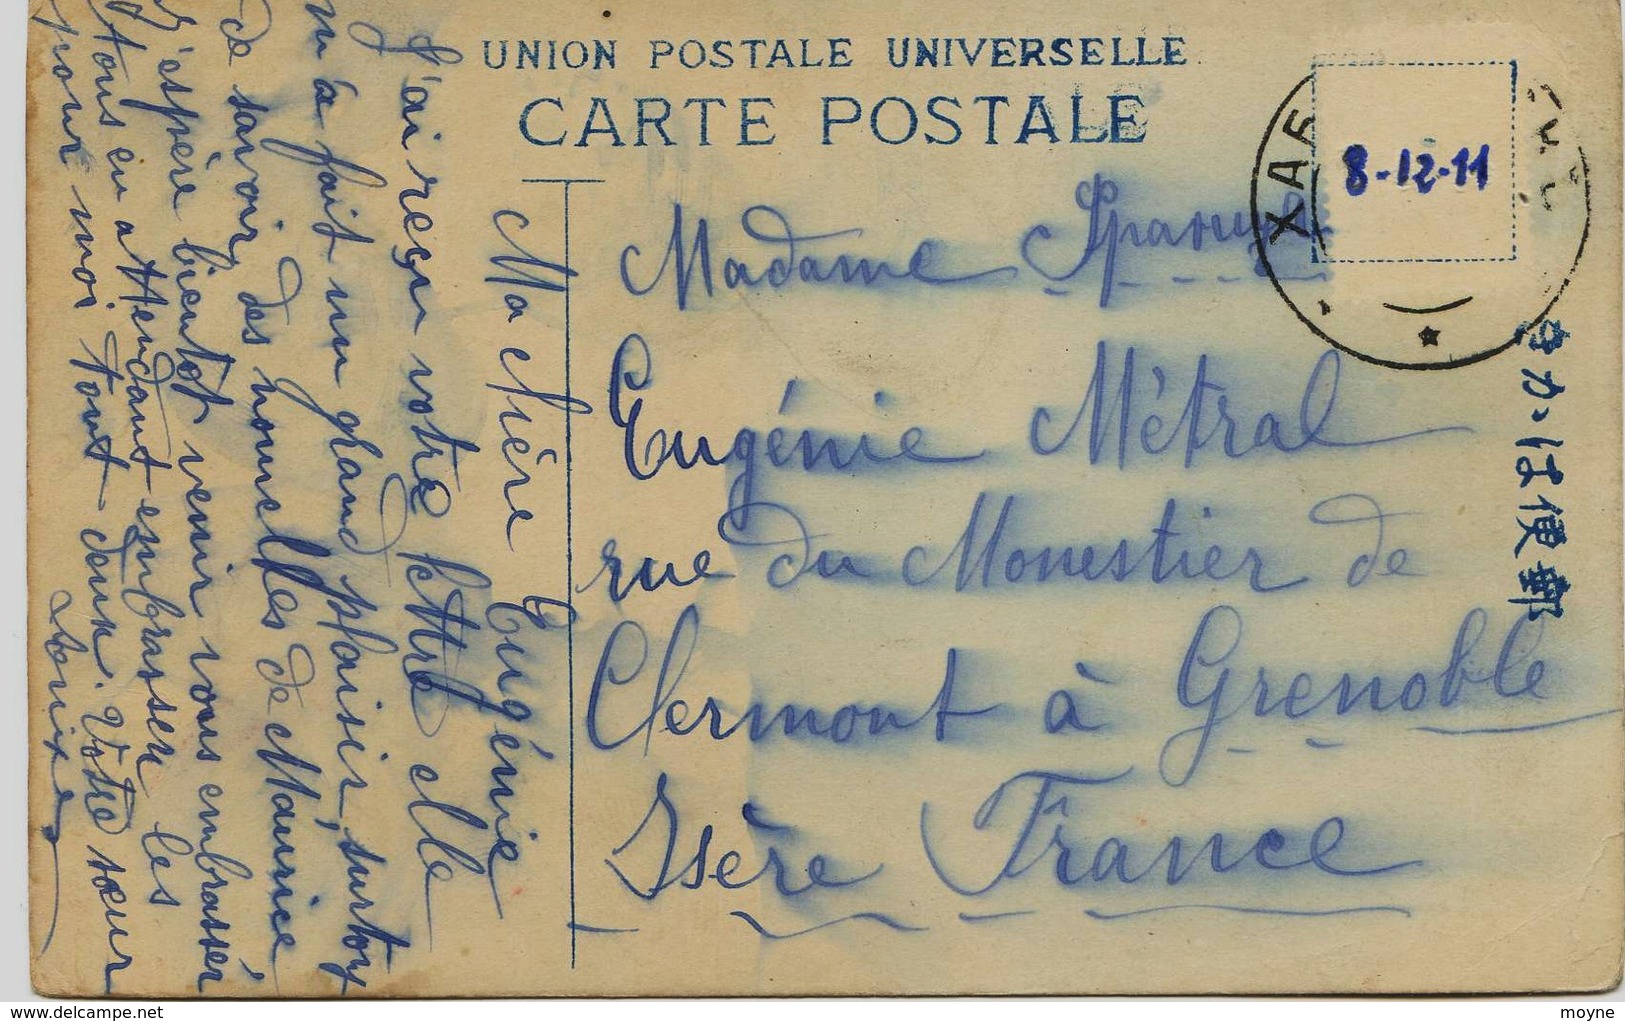 UNION POSTALE UNIVERSELLE
CARTE POSTALE
8-12-11
ХАБ
きかは便郵
Madame
Eugénie Métral
rue du Monestier de
Clermont à Grenoble
Isère France
Ma chère Eugénie
J'ai reçu votre lettre elle
m'a fait un grand plaisir, surtout
de savoir des nouvelles de Maurice
J'espère bientot venir vous embrasser
tous en attendant embrasser les
pour moi tout deux. Votre sœur
Louise
delcampe.net
moyne